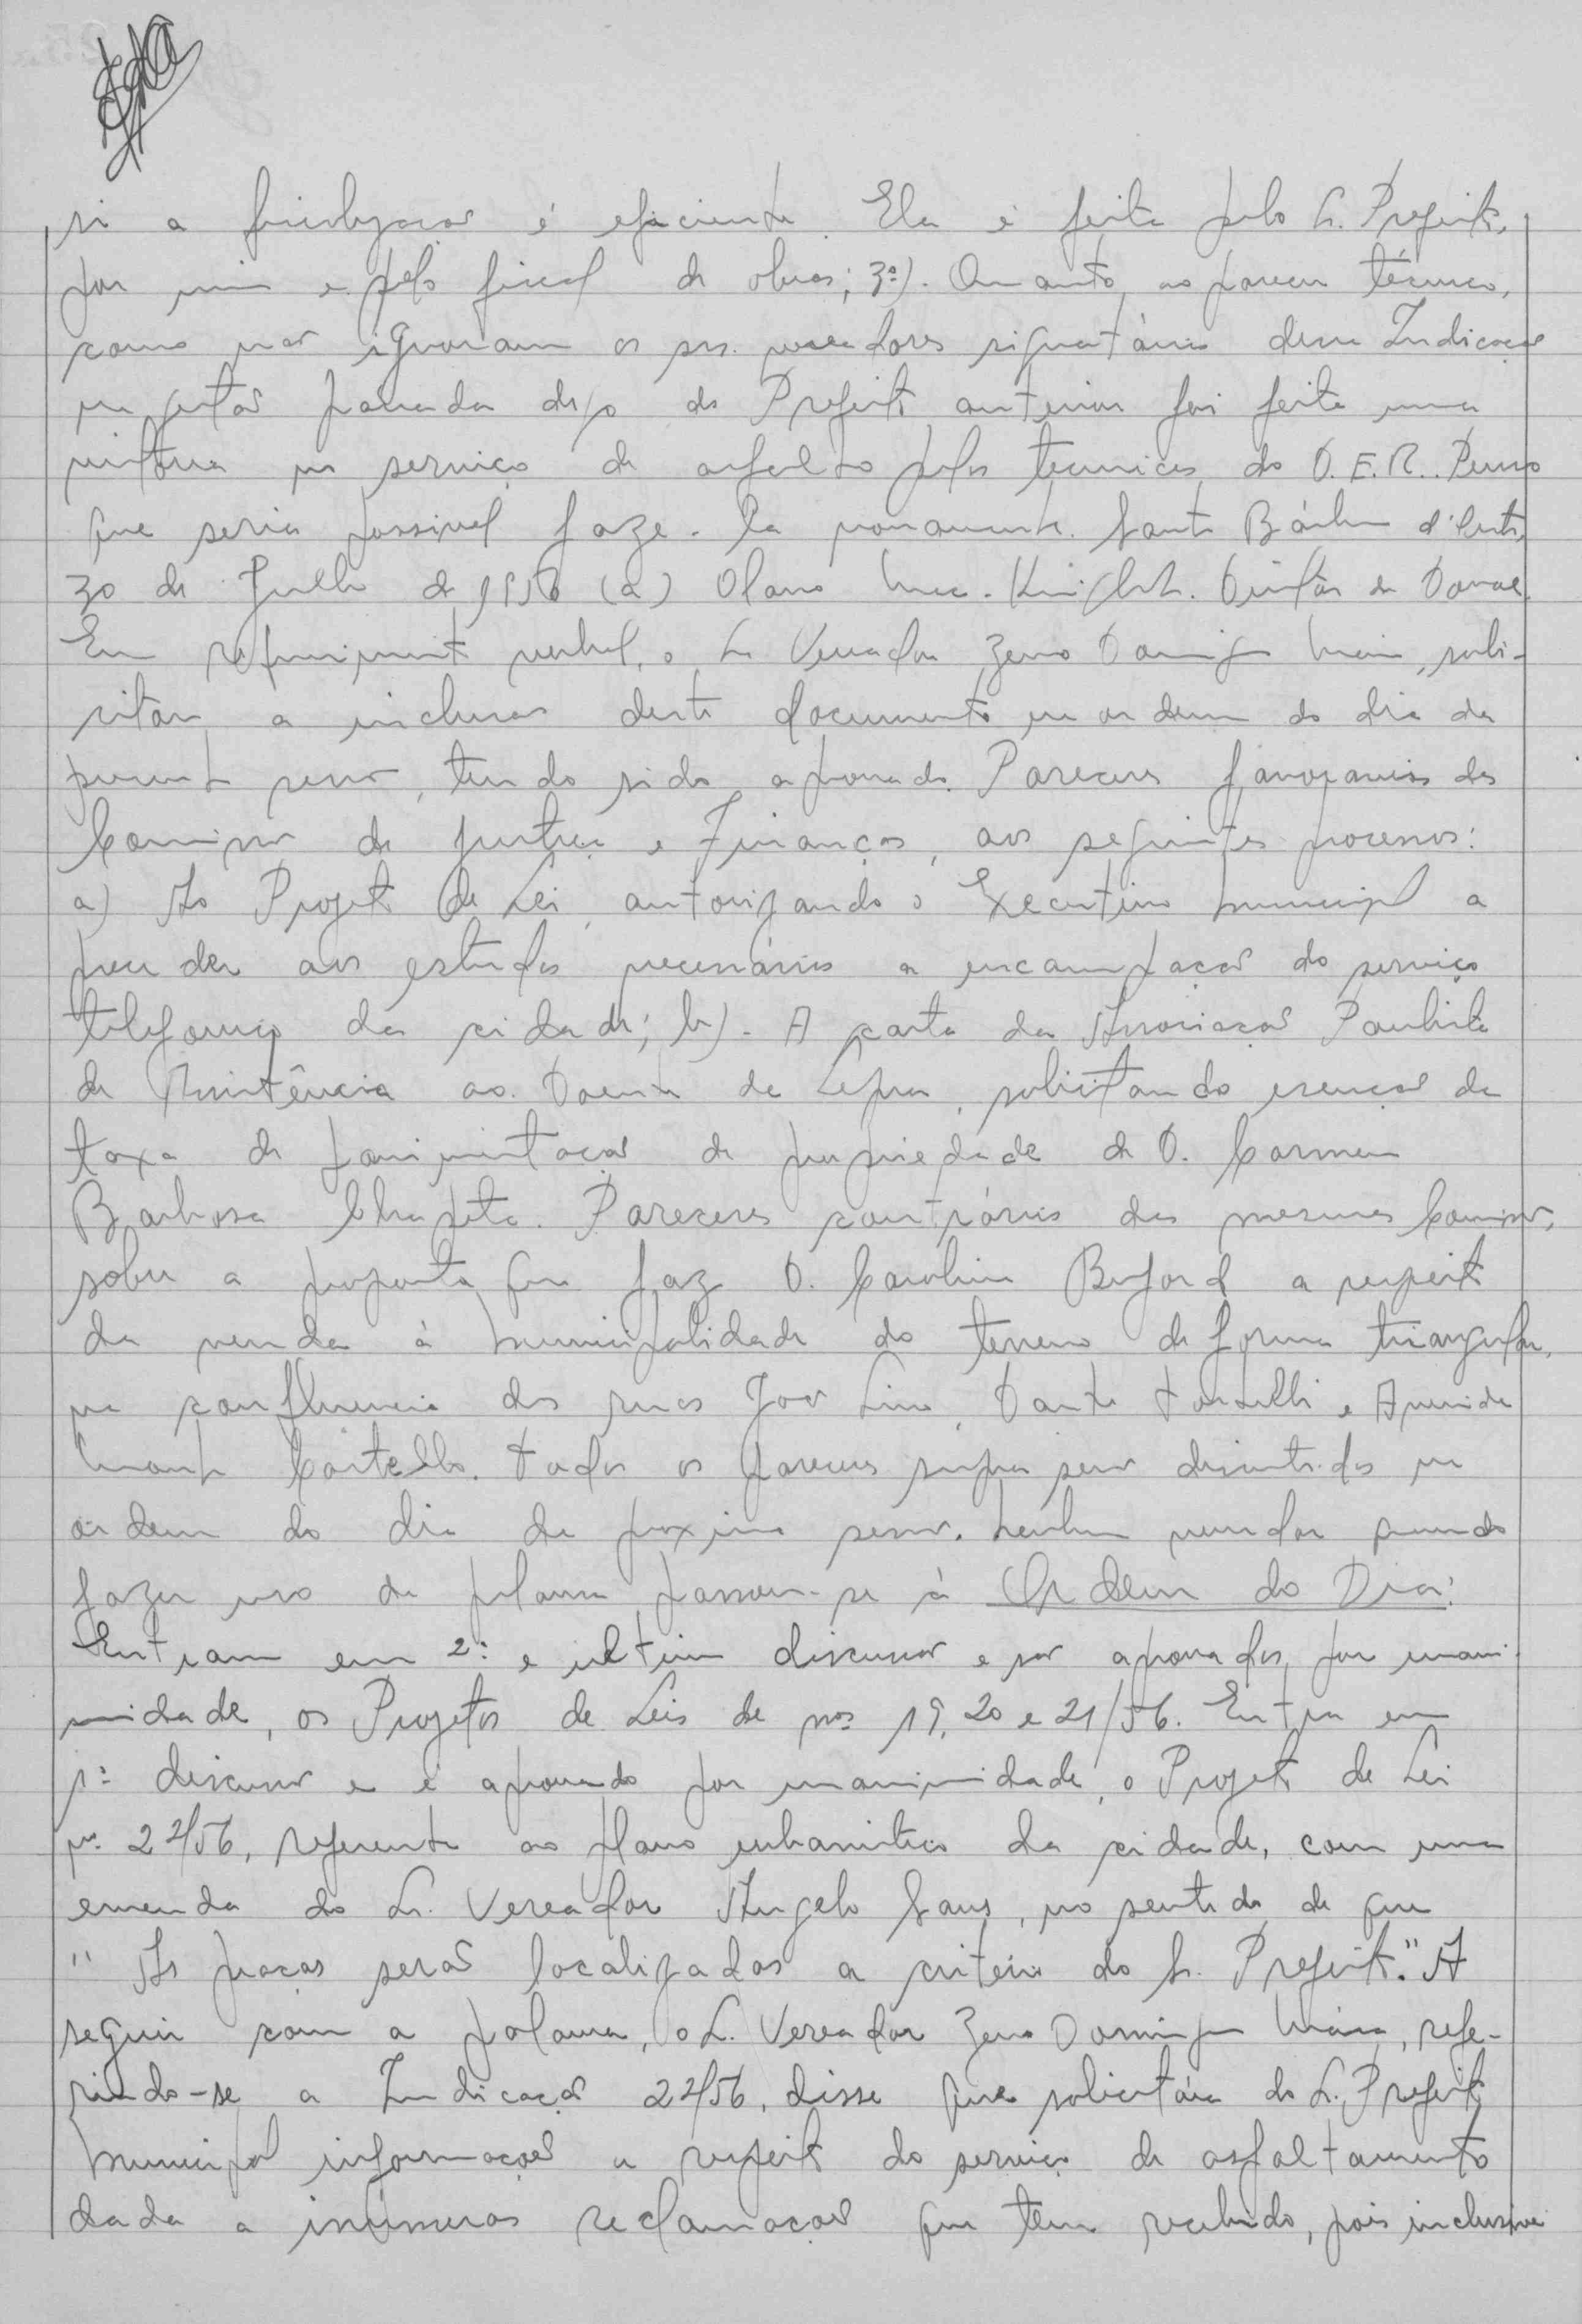 si a fiscalização é eficiente. Ela é feita pelo Sr. Prefeito,
por mim e pelo fiscal de obras; 3º). Quanto ao parecer técnico,
como não ignoram os srs. vereadores signatários dessa Indicação
na gestão passada do Prefeito anterior foi feita uma
vistoria no serviço de asfalto pelos tecnicos do D.E.R. Penso
que seria possivel faze-la novamente. Santa Bárbara d'Oeste,
30 de Julho de 1956 (a)
Em requerimento verbal, o Sr. Vereador Zeno Domingos Maia, soli-
citou a inclusão deste documento na ordem do dia da
presente sessão, tendo sido aprovado. Pareceres favoraveis das
Comissões de Justiça e Finanças, aos seguintes processos:
a) Ao Projeto de Lei, autorizando o Executivo Municipal a
proceder aos estudos necessários a encampação do serviço
telefonico da cidade; b)- A carta da Associação Paulista
de Assistência ao Doente de Lepra, solicitando isenção da
taxa de pavimentação da propriedade de D. Carmen
Barbosa. Pareceres contrários das mesmas Comissões,
sobre a proposta que faz D. Carolina Buford a respeito
da venda à Municipalidade do terreno de forma triangular,
na confluencia das ruas João Lino, Dante Tortelli e Avenida
Monte Castello. Todos os pareceres supra serão discutidos na
ordem do dia da proxima sessão. Nenhum vereador querendo
fazer uso da palavra passou-se à Ordem do Dia:
Entram em 2ª e ultima discussão e são aprovados, por unani-
midade, os Projetos de Leis de nos 19, 20 e 21/56. Entra em
1ª discussão e é aprovado por unanimidade, o Projeto de Lei
nº 22/56, referente ao plano urbanistico da cidade, com uma
emenda do Sr. Vereador Angelo Sans, no sentido de que
" As praças serão localizadas a critério do Sr. Prefeito." A
seguir com a palavra, o Sr. Vereador Zeno Domingos Maia, refe-
rindo-se a Indicação 22/56, disse que solicitára do Sr. Prefeito
Municipal informações a respeito do serviço de asfaltamento
dada a inúmeras reclamações que tem recebido, pois inclusive